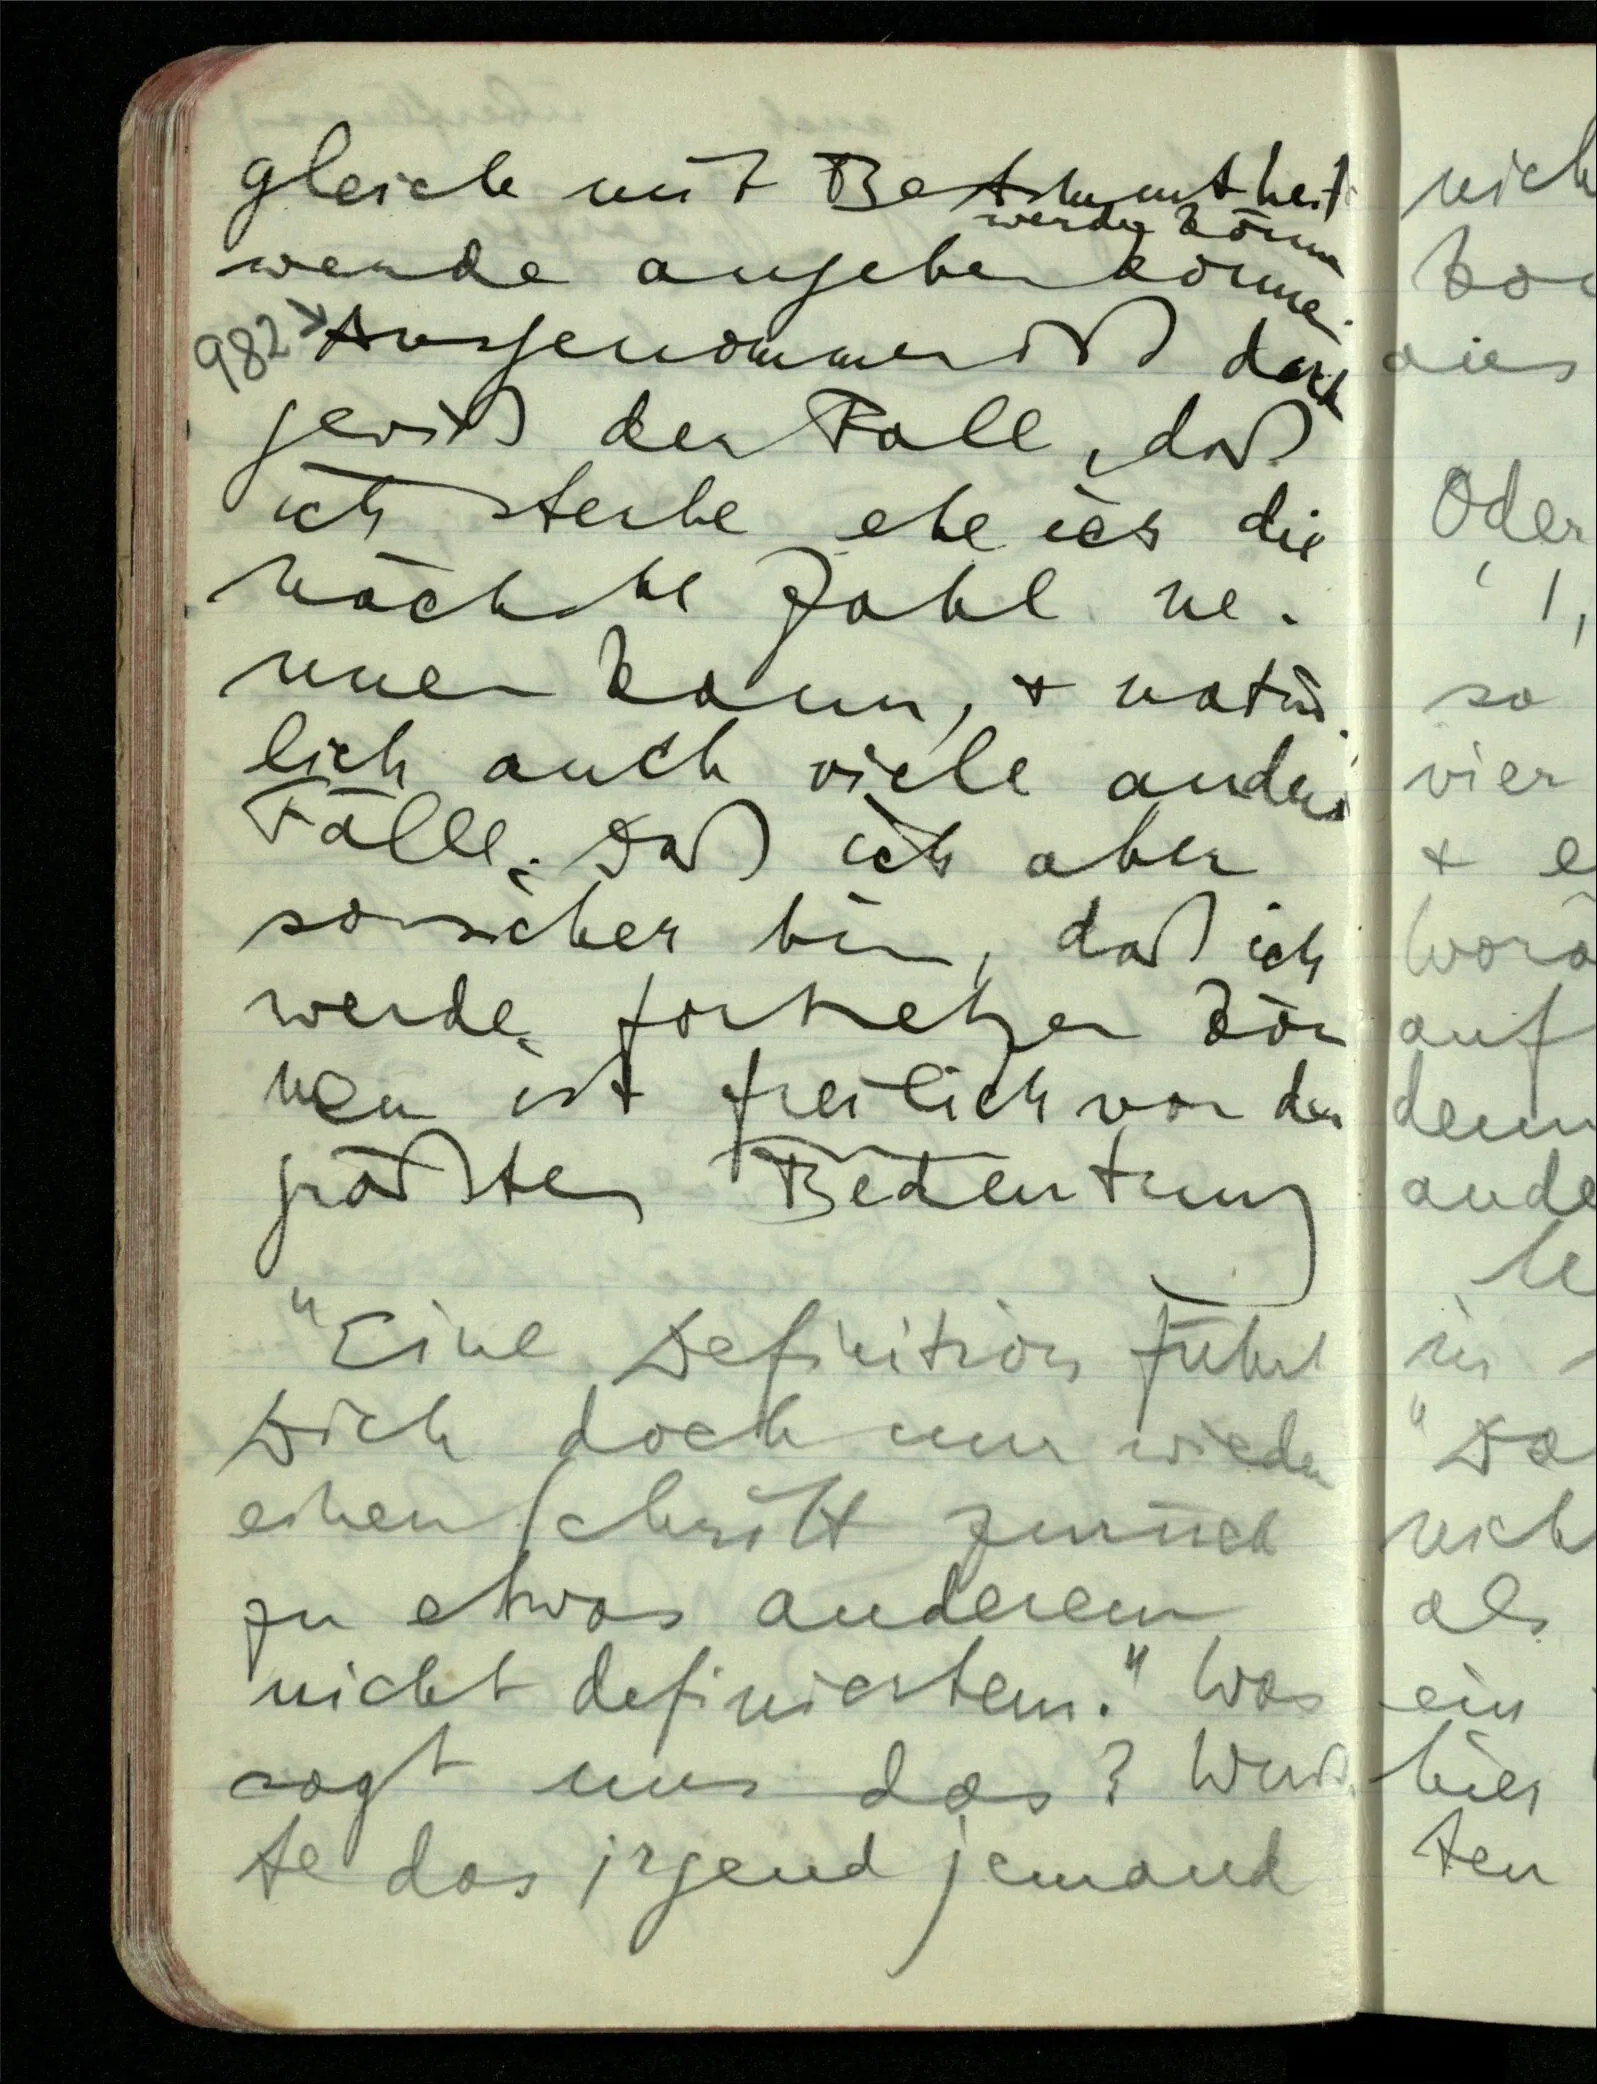 gleich mit Bestimmtheit
werden können
werde angeben können.
982 Ausgenommen ist doch
gewiß der Fall, daß
ich sterbe ehe ich die
nächste Zahl ne-
nnen kann, + natür-
lich auch viele andere
Fälle. Daß ich aber
so sicher bin, daß ich
werde fortsetzen kön
nen ist freilich von der
größten Bedeutung
"Eine Definition führt
Dich doch nur wieder
einen Schritt zurück
zu etwas anderem
nicht definierten." Was
sagt uns das? Wuß-
te das irgend jemand
nich
kön
aus
Oder
1,
so
vier
+ e
Wora
auf
denn
ande
in
"Da
nich
als
ein
hier
ten